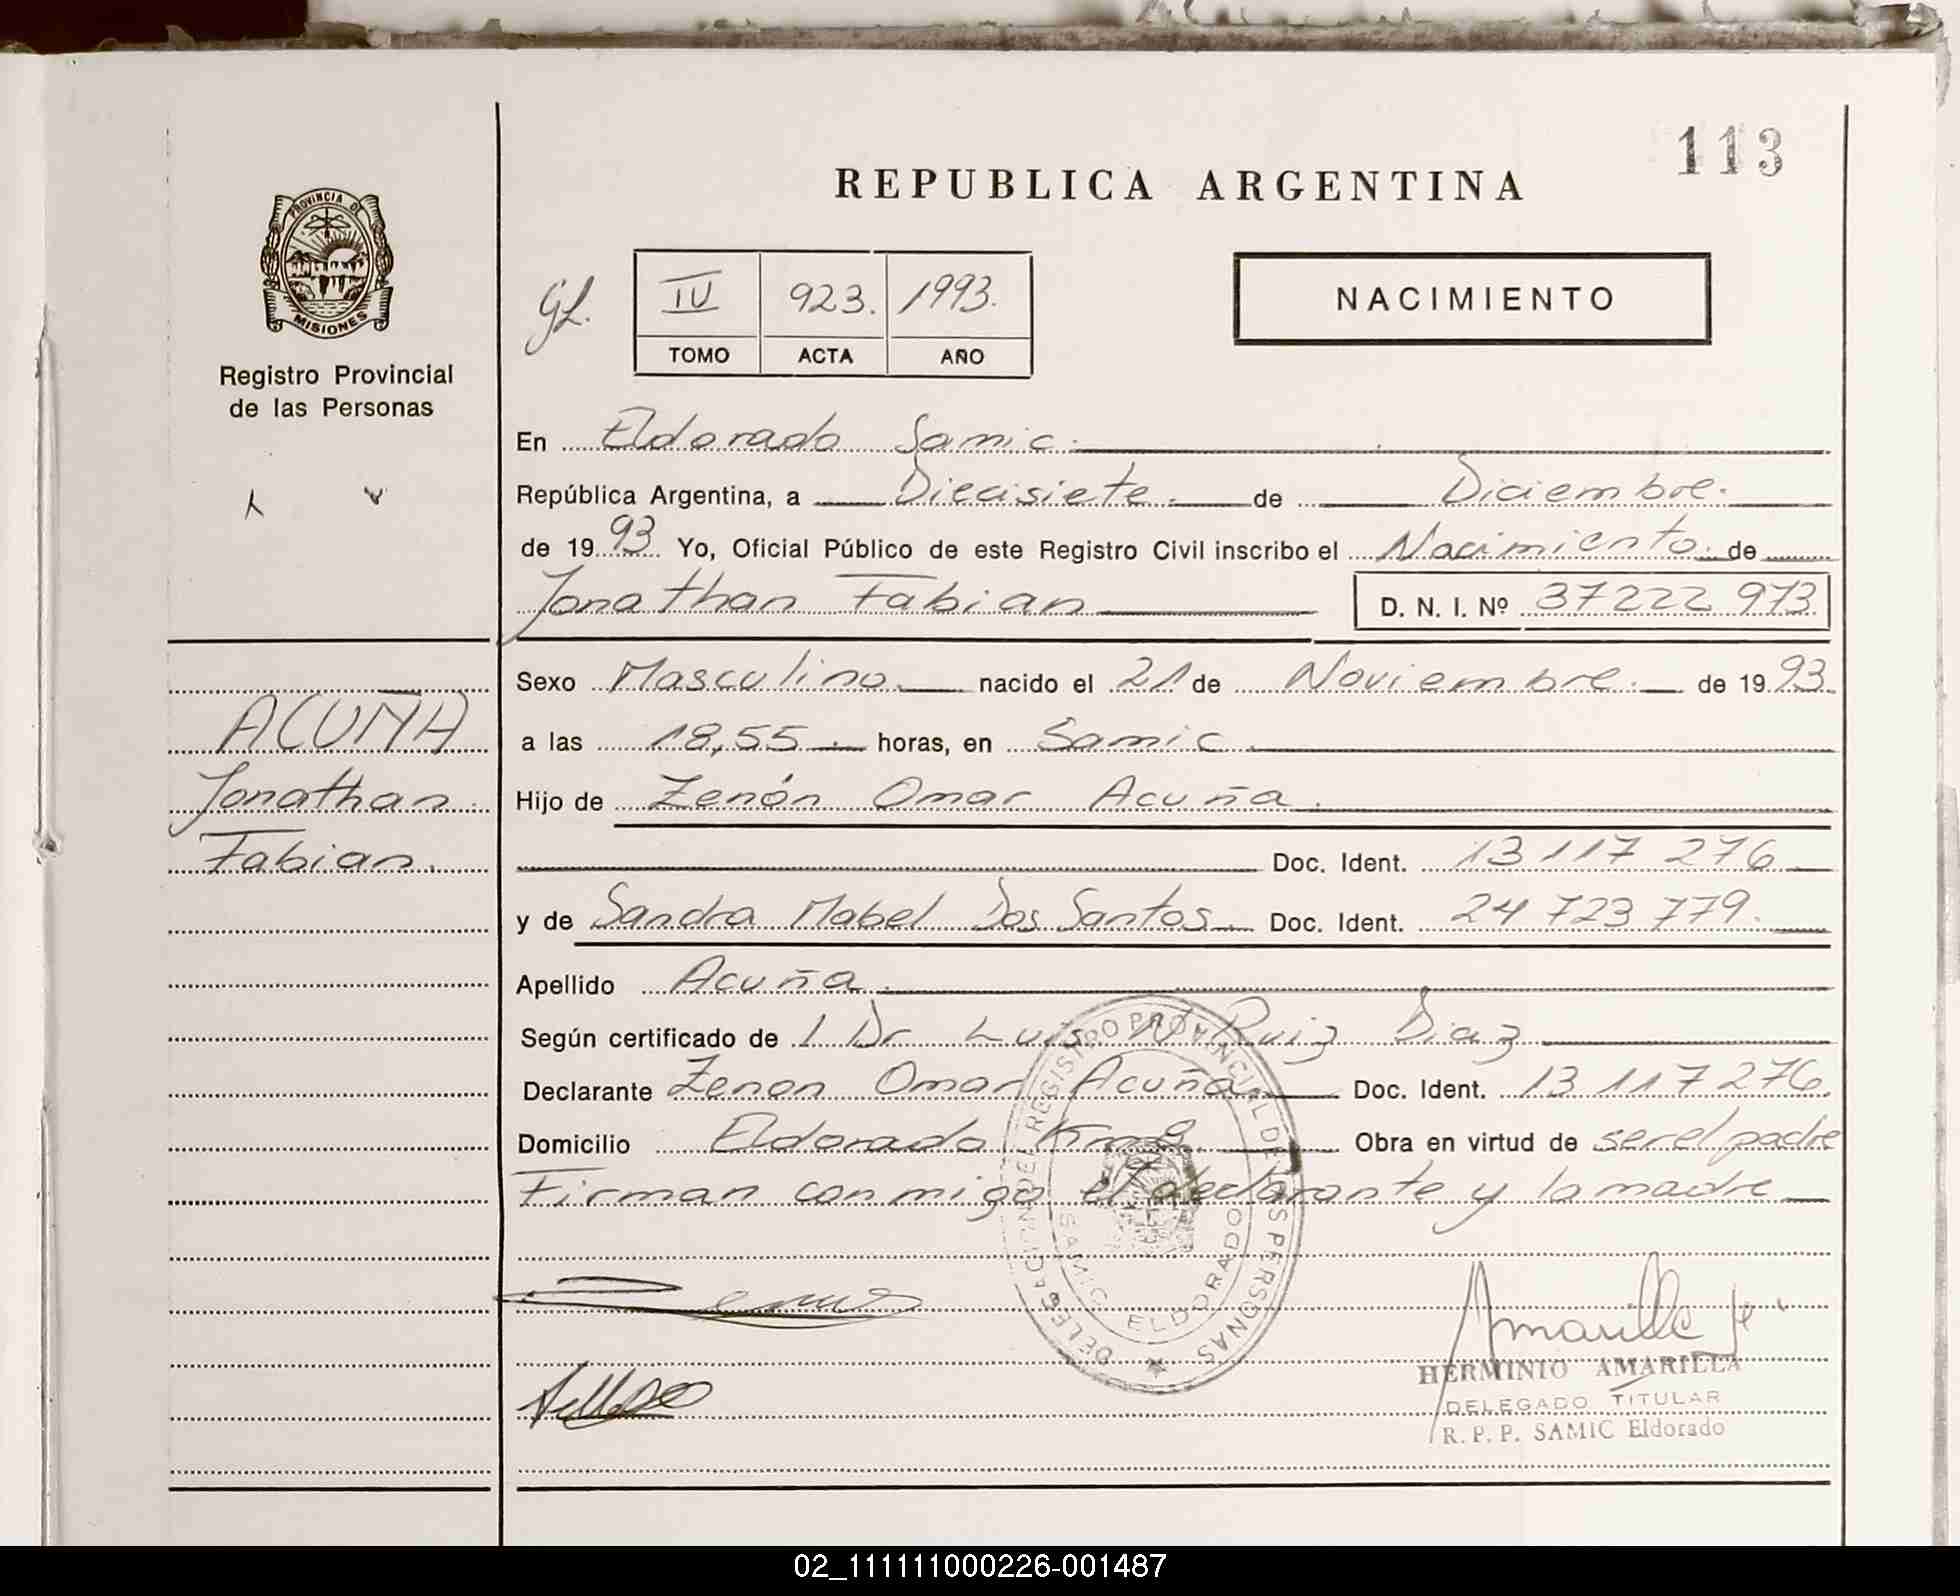 113
REPUBLICA ARGENTINA
PROVINCIA DE
MISIONES
Registro Provincial
de las Personas
GL. IV 923. 1993.
TOMO ACTA AÑO
NACIMIENTO
En Eldorado Samic.
República Argentina, a Diecisiete. de Diciembre.
de 1993 Yo, Oficial Público de este Registro Civil inscribo el Nacimiento. de
Jonathan Fabian D. N. I. Nº 37222 973
Sexo Masculino. nacido el 21 de Noviembre. de 1993.
ACUÑA
a las 18,55. horas, en Samic.
Jonathan
Hijo de Zenón Omar Acuña.
Fabian.
Doc. Ident. 13 117 276
y de Sandra Mabel Dos Santos. Doc. Ident. 24 723 779.
Apellido Acuña.
Según certificado de 1 Dr Luis N Ruiz Diaz
Declarante Zenon Omar Acuña Doc. Ident. 13 117 276.
Domicilio Eldorado Km 8 Obra en virtud de ser el padre
Firman conmigo el declarante y la madre
DELEGACION DEL REGISTRO PROVINCIAL DE LAS PERSONAS
SAMIC ELDORADO
Amarilla H.
HERMINIO AMARILLA
DELEGADO TITULAR
R. P. P. SAMIC Eldorado
02_111111000226-001487